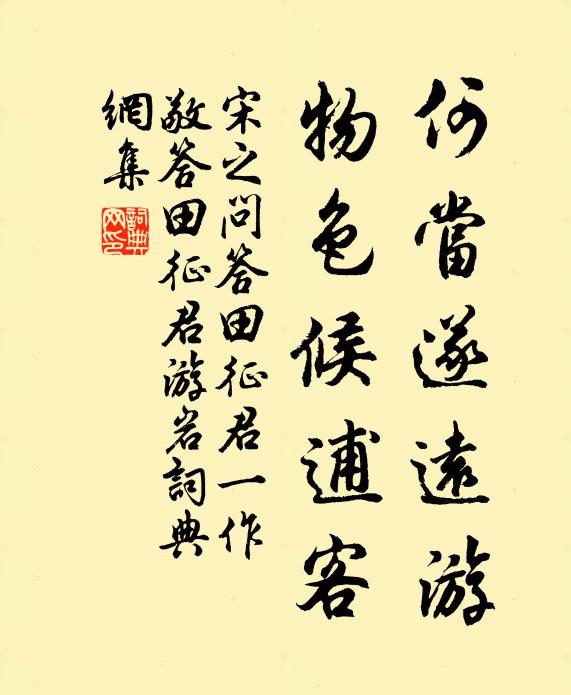 何當遂遠游
物色候逋客
宋之问答田征君一作
敬答田征君游岩詞典
網集
詞典网印